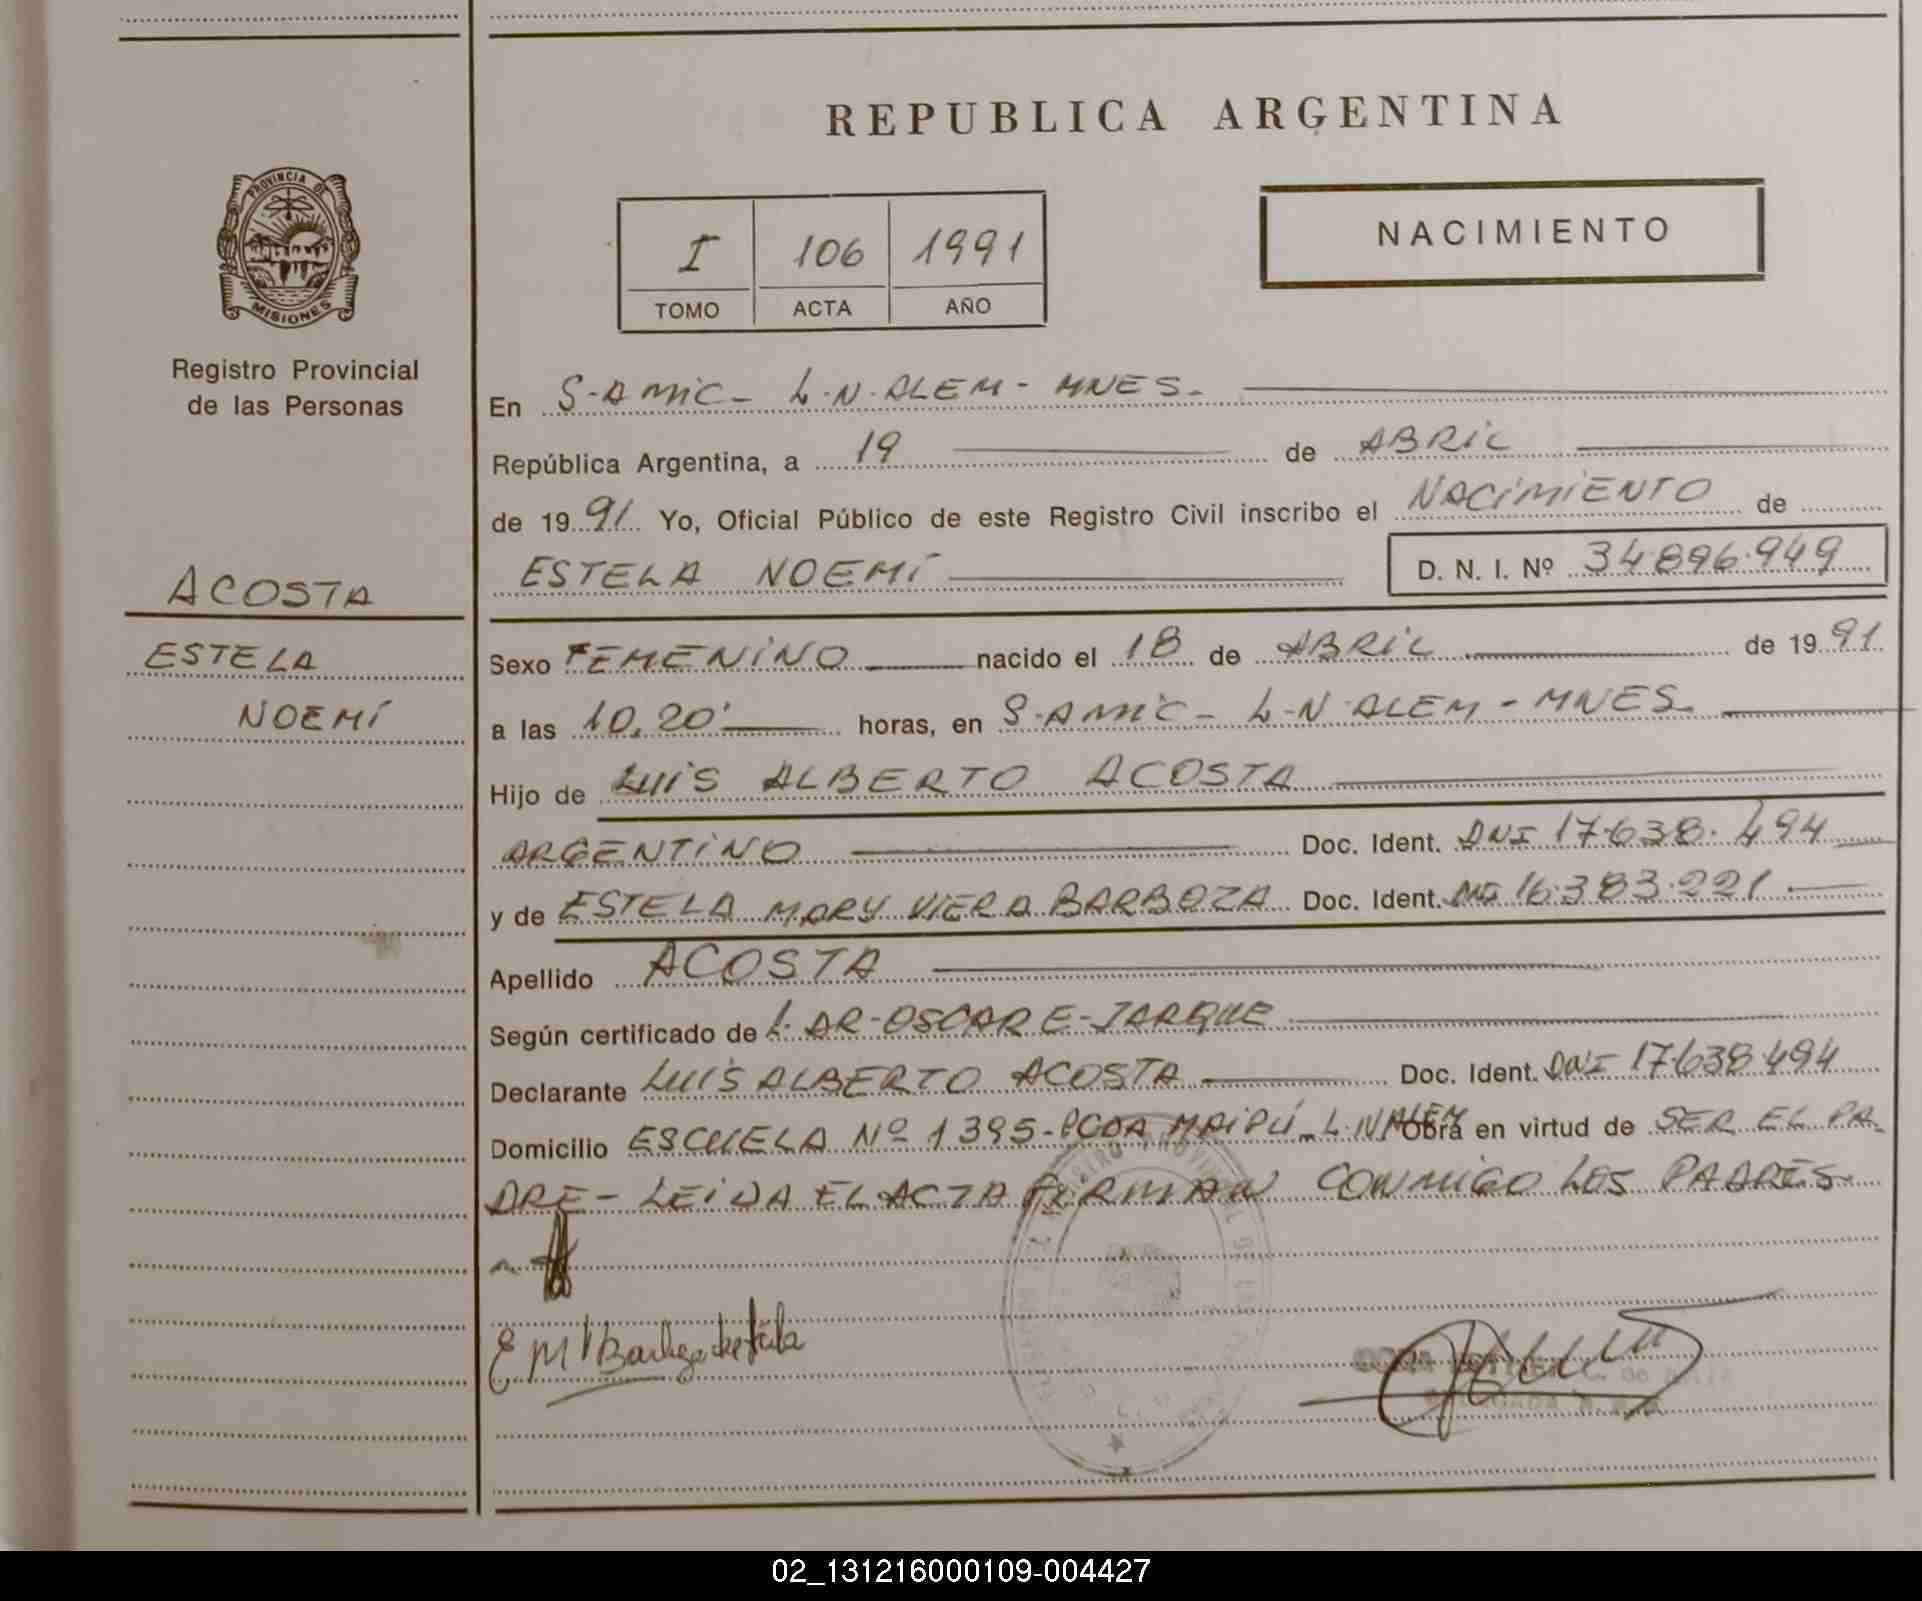 REPUBLICA ARGENTINA
PROVINCIA DE
MISIONES
Registro Provincial
de las Personas
I 106 1991
TOMO ACTA AÑO
NACIMIENTO
En S-AMIC- L.N.ALEM- MNES-
República Argentina, a 19 de ABRIL
de 1991 Yo, Oficial Público de este Registro Civil inscribo el NACIMIENTO de
ESTELA NOEMÍ D. N. I. Nº 34.896.949
ACOSTA
ESTELA
NOEMÍ
Sexo FEMENINO nacido el 18 de ABRIL de 1991
a las 10,20' horas, en S-AMIC- L-N ALEM - MNES-
Hijo de LUIS ALBERTO ACOSTA
ARGENTINO Doc. Ident. DNI 17.638.494
y de ESTELA MARY VIERA BARBOZA Doc. Ident. DNI 16.383.221
Apellido ACOSTA
Según certificado de L. DR-OSCAR E-JARQUE
Declarante LUIS ALBERTO ACOSTA Doc. Ident. DNI 17.638.494
Domicilio ESCUELA Nº 1395- PCDA MAIPÚ- L.N ALEM Obra en virtud de SER EL PA-
DRE- LEIDA EL ACTA FIRMAN CONMIGO LOS PADRES-
02_131216000109-004427